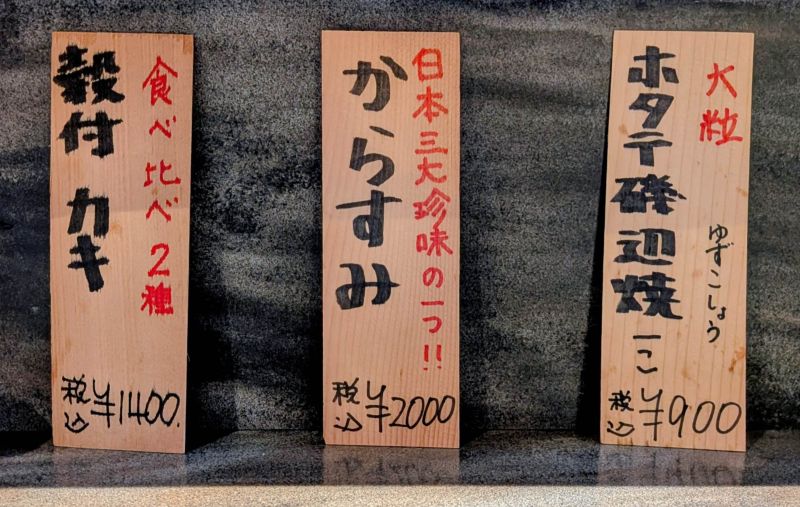 大粒
ホタテ磯辺焼 一こ
ゆずこしょう
税込 ¥900
日本三大珍味の一つ!!
からすみ
税込 ¥2000
食べ比べ2種
殻付 カキ
税込 ¥1400.